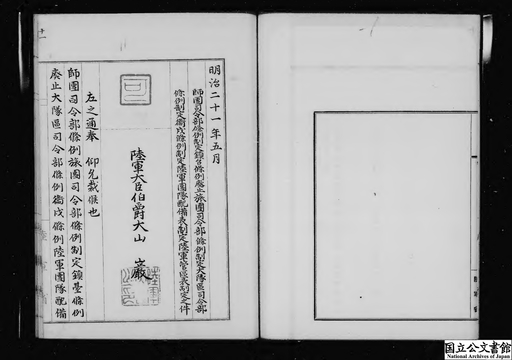 明治二十一年五月
師團司令部條例制定鎮臺條例廢止旅團司令部條例制定大隊區司令部
條例制定衞戍條例制定陸軍團隊配備表制定陸軍管區表制定之件
陸軍大臣伯爵大山巖
左之通奉仰允裁候也
師團司令部條例旅團司令部條例制定鎮臺條例
廢止大隊區司令部條例衞戍條例陸軍團隊配備
十一
国立公文書館
National Archives of Japan